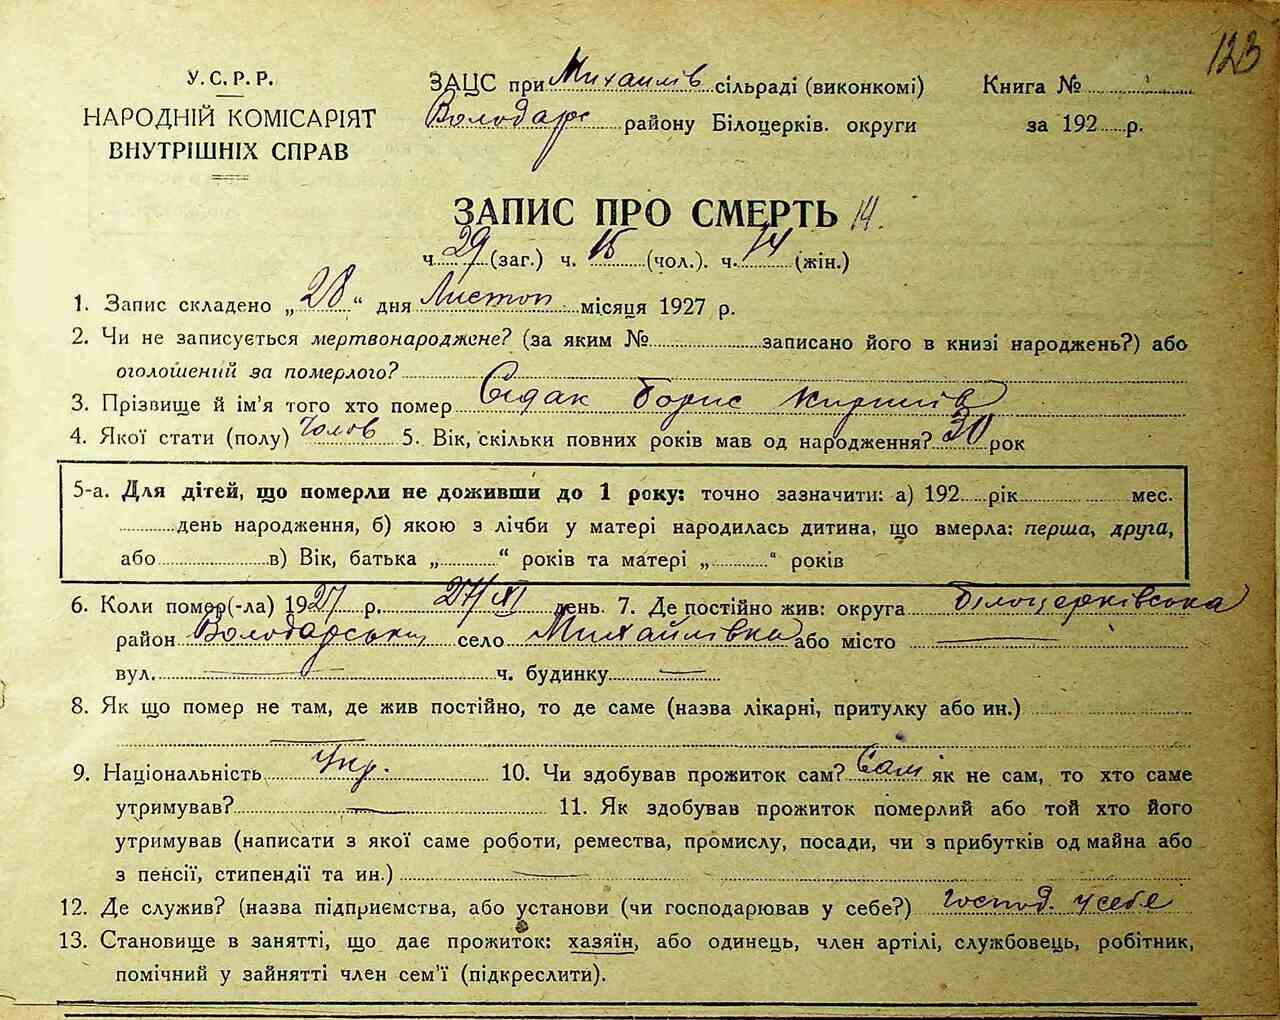 123
У.С.Р.Р.
НАРОДНІЙ КОМІСАРІЯТ
ВНУТРІШНІХ СПРАВ
ЗАЦС при Михайлів сільраді (виконкомі)
Володарс району Білоцерків. округи
Книга №
за 192 р.
ЗАПИС ПРО СМЕРТЬ 14.
ч. 29 (заг.) ч. 15 (чол.). ч. 14 (жін.)
1. Запис складено „28“ дня Листоп місяця 1927 р.
2. Чи не записується мертвонароджене? (за яким № записано його в книзі народжень?) або
оголошений за померлого?
3. Прізвище й ім'я того хто помер Сідак Борис Кирилів
4. Якої стати (полу) Чолов 5. Вік, скільки повних років мав од народження? 30 рок
5-а. Для дітей, що померли не доживши до 1 року: точно зазначити: а) 192 рік мес.
день народження, б) якою з лічби у матері народилась дитина, що вмерла: перша, друга,
або в) Вік, батька „ “ років та матері „ “ років
6. Коли помер(-ла) 1927 р. 27/XI день. 7. Де постійно жив: округа Білоцерківська
район Володарський село Михайлівка або місто
вул. ч. будинку
8. Як що помер не там, де жив постійно, то де саме (назва лікарні, притулку або ин.)
9. Національність Укр. 10. Чи здобував прожиток сам? Сам як не сам, то хто саме
утримував? 11. Як здобував прожиток померлий або той хто його
утримував (написати з якої саме роботи, ремества, промислу, посади, чи з прибутків од майна або
з пенсії, стипендії та ин.)
12. Де служив? (назва підприємства, або установи (чи господарював у себе?) Господ. у себе
13. Становище в занятті, що дає прожиток: хазяїн, або одинець, член артілі, службовець, робітник,
помічний у зайнятті член сем'ї (підкреслити).